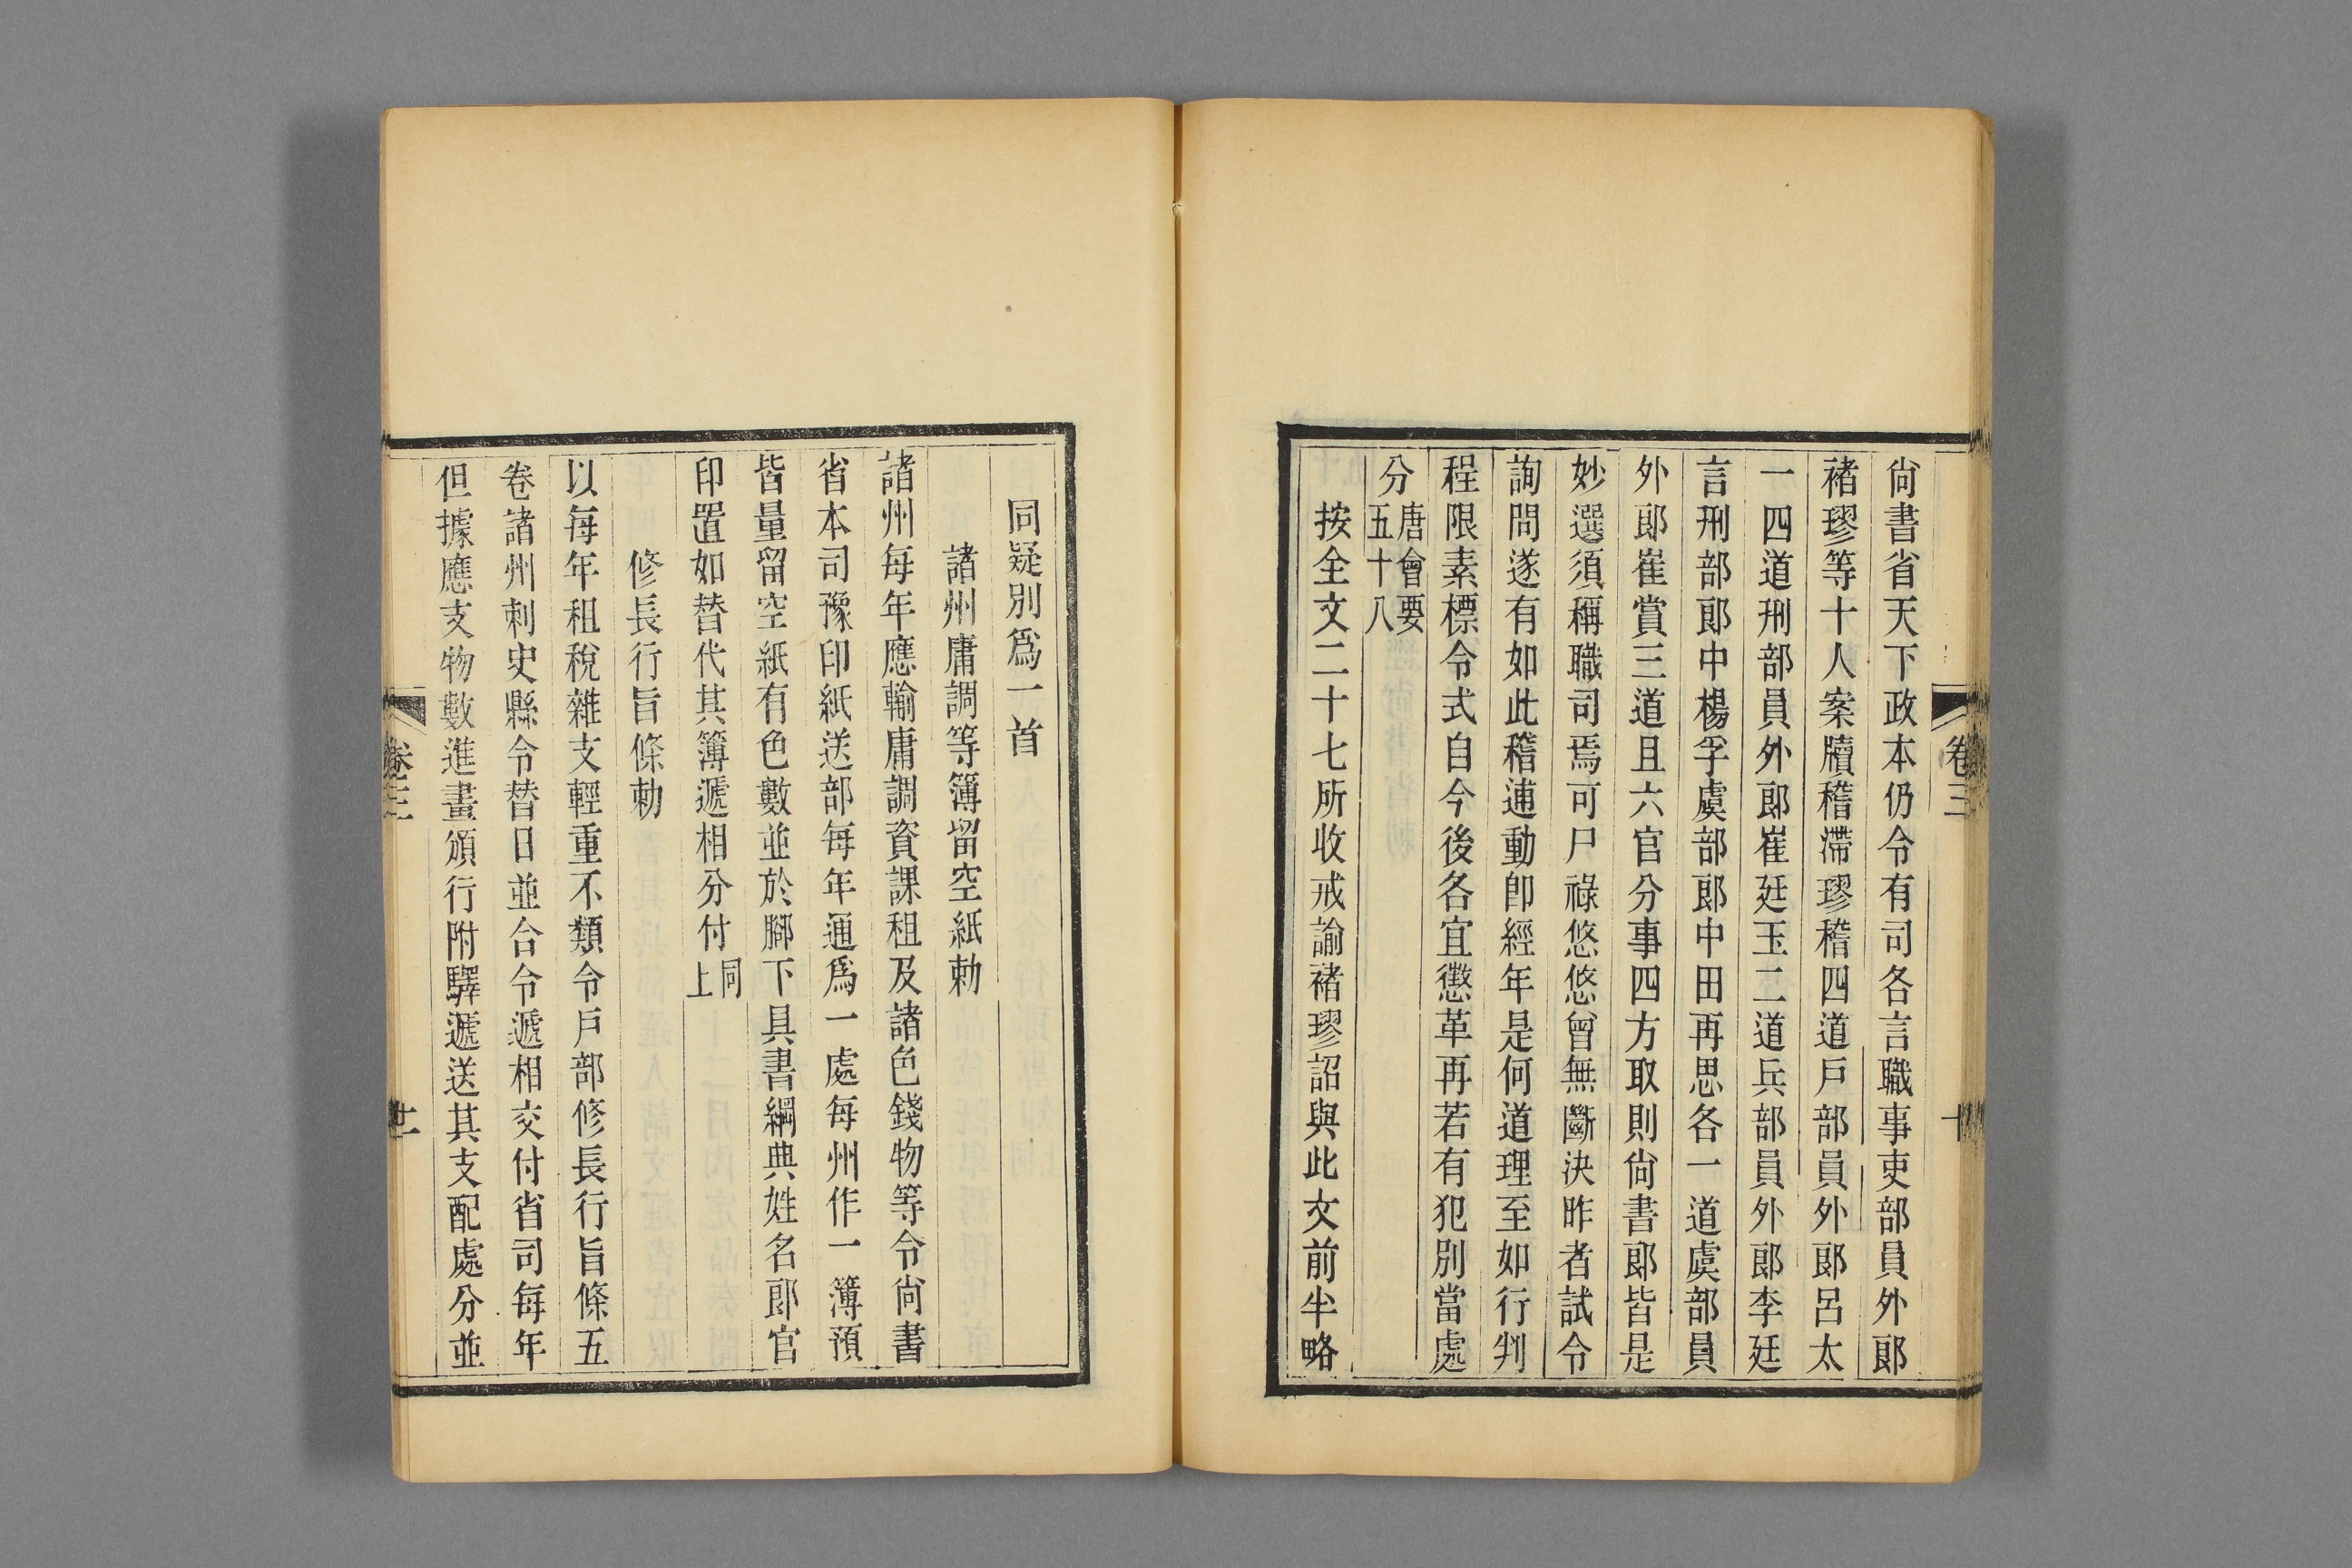 卷三
十
尙書省天下政本仍令有司各言職事吏部員外郎
褚璆等十人案牘稽滯璆稽四道戸部員外郎呂太
一四道刑部員外郎崔廷玉二道兵部員外郎李廷
言刑部郎中楊孚虞部郎中田再思各一道虞部員
外郎崔賞三道且六官分事四方取則尙書郎皆是
妙選須稱職司焉可尸祿悠悠曾無斷決昨者試令
詢問遂有如此稽逋動卽經年是何道理至如行判
程限素標令式自今後各宜懲革再若有犯別當處
分唐會要五十八
按全文二十七所收戒諭褚璆詔與此文前半略
同疑別爲一首
諸州庸調等簿留空紙勅
諸州每年應輸庸調資課租及諸色錢物等令尙書
省本司豫印紙送部每年通爲一處每州作一簿預
皆量留空紙有色數並於腳下具書綱典姓名郎官
印置如替代其簿遞相分付同上
修長行旨條勅
以每年租稅雜支輕重不類令戸部修長行旨條五
卷諸州刺史縣令替日並合令遞相交付省司每年
但據應支物數進畫頒行附驛遞送其支配處分並
卷三
十一